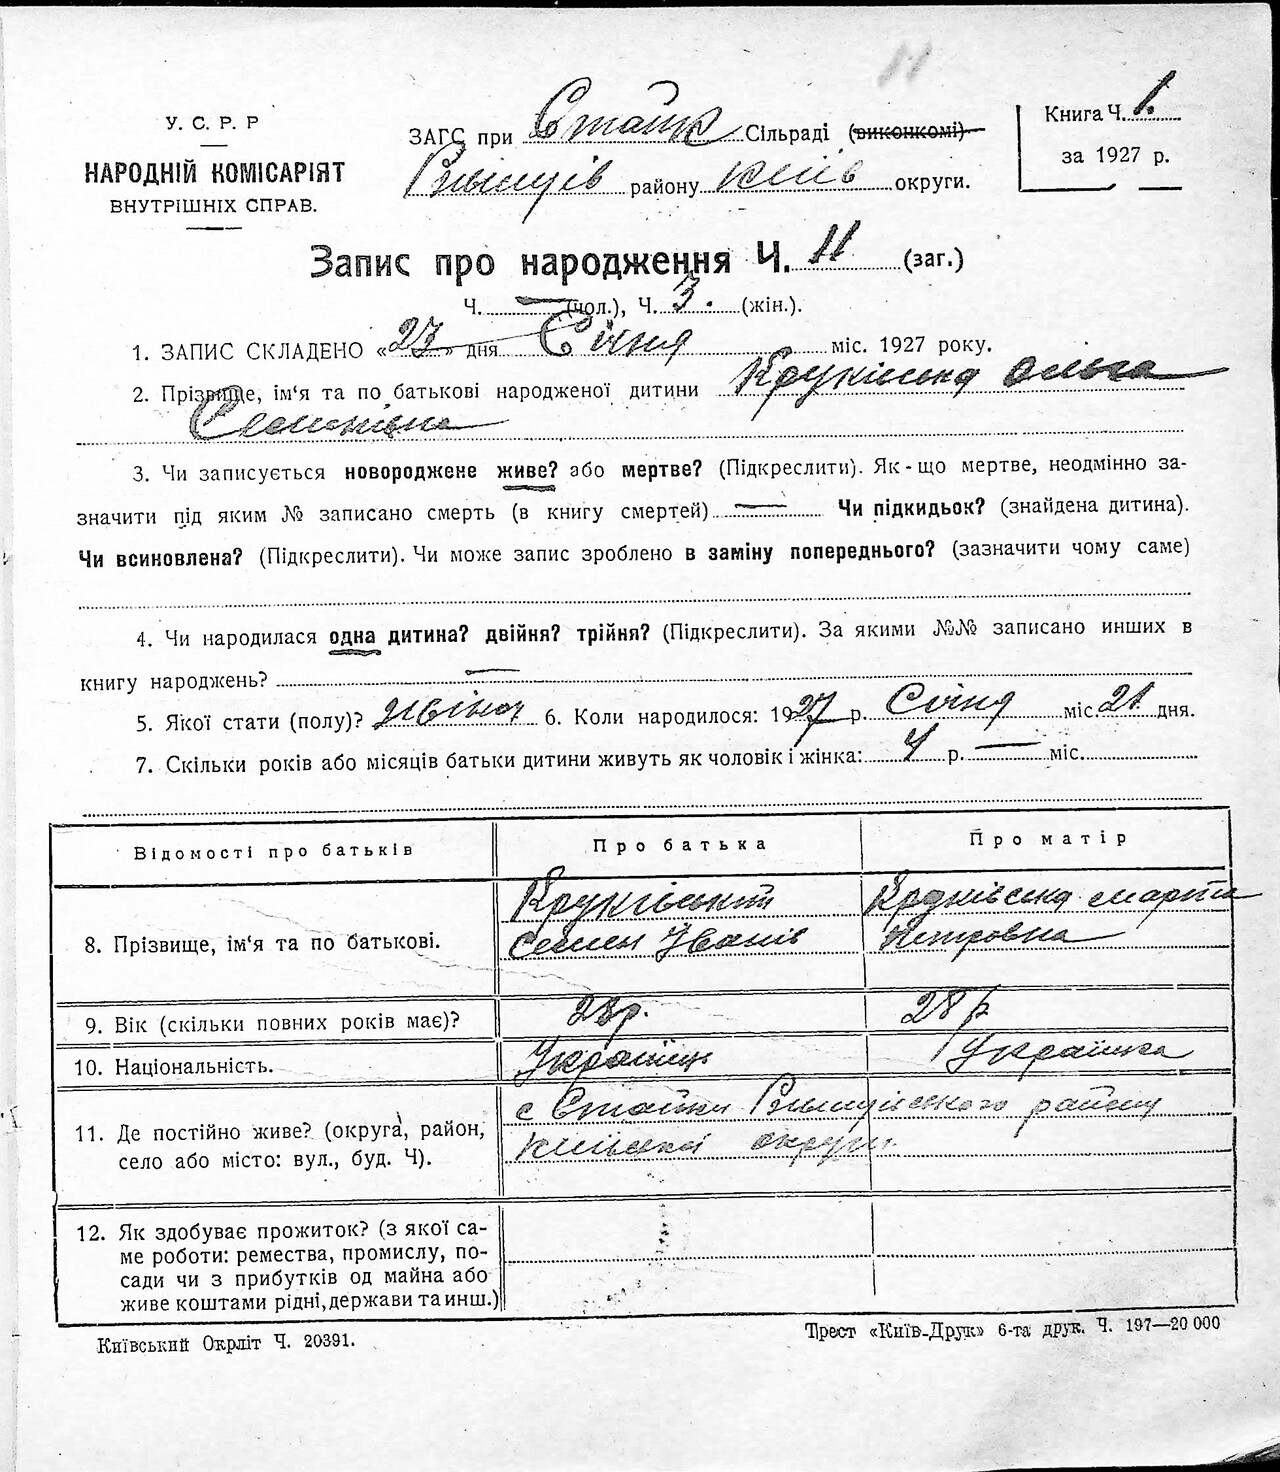 11
У. С. Р. Р
НАРОДНІЙ КОМІСАРІЯТ
ВНУТРІШНІХ СПРАВ.
ЗАГС при Стайк Сільраді (виконкомі)
району Київ округи.
Книга Ч. 1.
за 1927 р.
Запис про народження Ч. 11 (заг.)
Ч. — (чол.), Ч. 3. (жін.).
1. ЗАПИС СКЛАДЕНО «27» дня Січня міс. 1927 року.
2. Прізвище, ім‘я та по батькові народженої дитини Круківська Ольга
Семенівна
3. Чи записується новороджене живе? або мертве? (Підкреслити). Як-що мертве, неодмінно за-
значити під яким № записано смерть (в книгу смертей) — Чи підкидьок? (знайдена дитина).
Чи всиновлена? (Підкреслити). Чи може запис зроблено в заміну попереднього? (зазначити чому саме)
4. Чи народилася одна дитина? двійня? трійня? (Підкреслити). За якими №№ записано инших в
книгу народжень? —
5. Якої стати (полу)? жіноч 6. Коли народилося: 1927 р. Січня міс. 21 дня.
7. Скільки років або місяців батьки дитини живуть як чоловік і жінка: 4 р. — міс.
Відомості про батьків
Про батька
Про матір
8. Прізвище, ім‘я та по батькові.
Круківський
Семен Іванів
Круківська Марта
Петровна
9. Вік (скільки повних років має)?
28р.
28 р
10. Національність.
Українць
Українка
11. Де постійно живе? (округа, район,
село або місто: вул., буд. Ч).
с Стайки району
Київської округи
12. Як здобуває прожиток? (з якої са-
ме роботи: ремества, промислу, по-
сади чи з прибутків од майна або
живе коштами рідні, держави та инш.)
Київський Окрліт Ч. 20391.
Трест «Київ-Друк» 6-та друк. Ч. 197—20 000